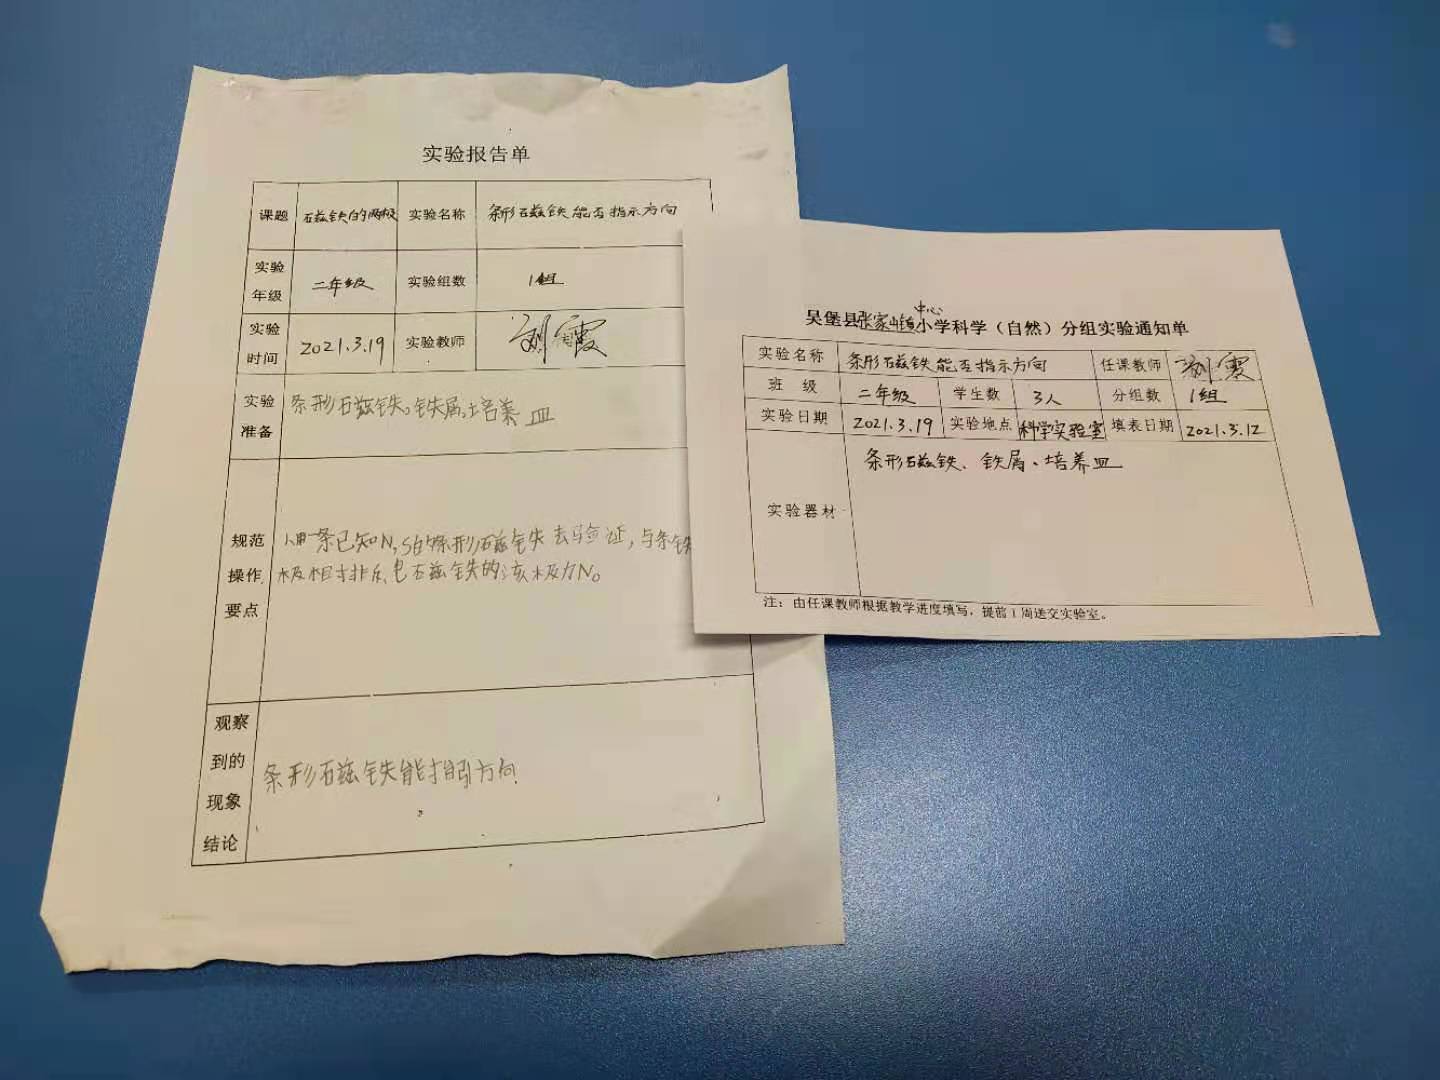 实验报告单
课题 磁铁的两极 实验名称 条形磁铁能否指示方向
实验年级 二年级 实验组数 1组
实验时间 2021.3.19 实验教师 刘霞
实验准备 条形磁铁,铁屑,培养皿
规范操作要点 1.用一条已知N,S的条形磁铁去验证,与条铁
极相排斥
磁铁的该极为N。
观察到的现象结论 条形磁铁能指引方向
中心
吴堡县张家山镇小学科学(自然)分组实验通知单
实验名称 条形磁铁能否指示方向 任课教师 刘霞
班级 二年级 学生数 3人 分组数 1组
实验日期 2021.3.19 实验地点 科学实验室 填表日期 2021.3.12
实验器材 条形磁铁、铁屑、培养皿
注:由任课教师根据教学进度填写,提前1周送交实验室。